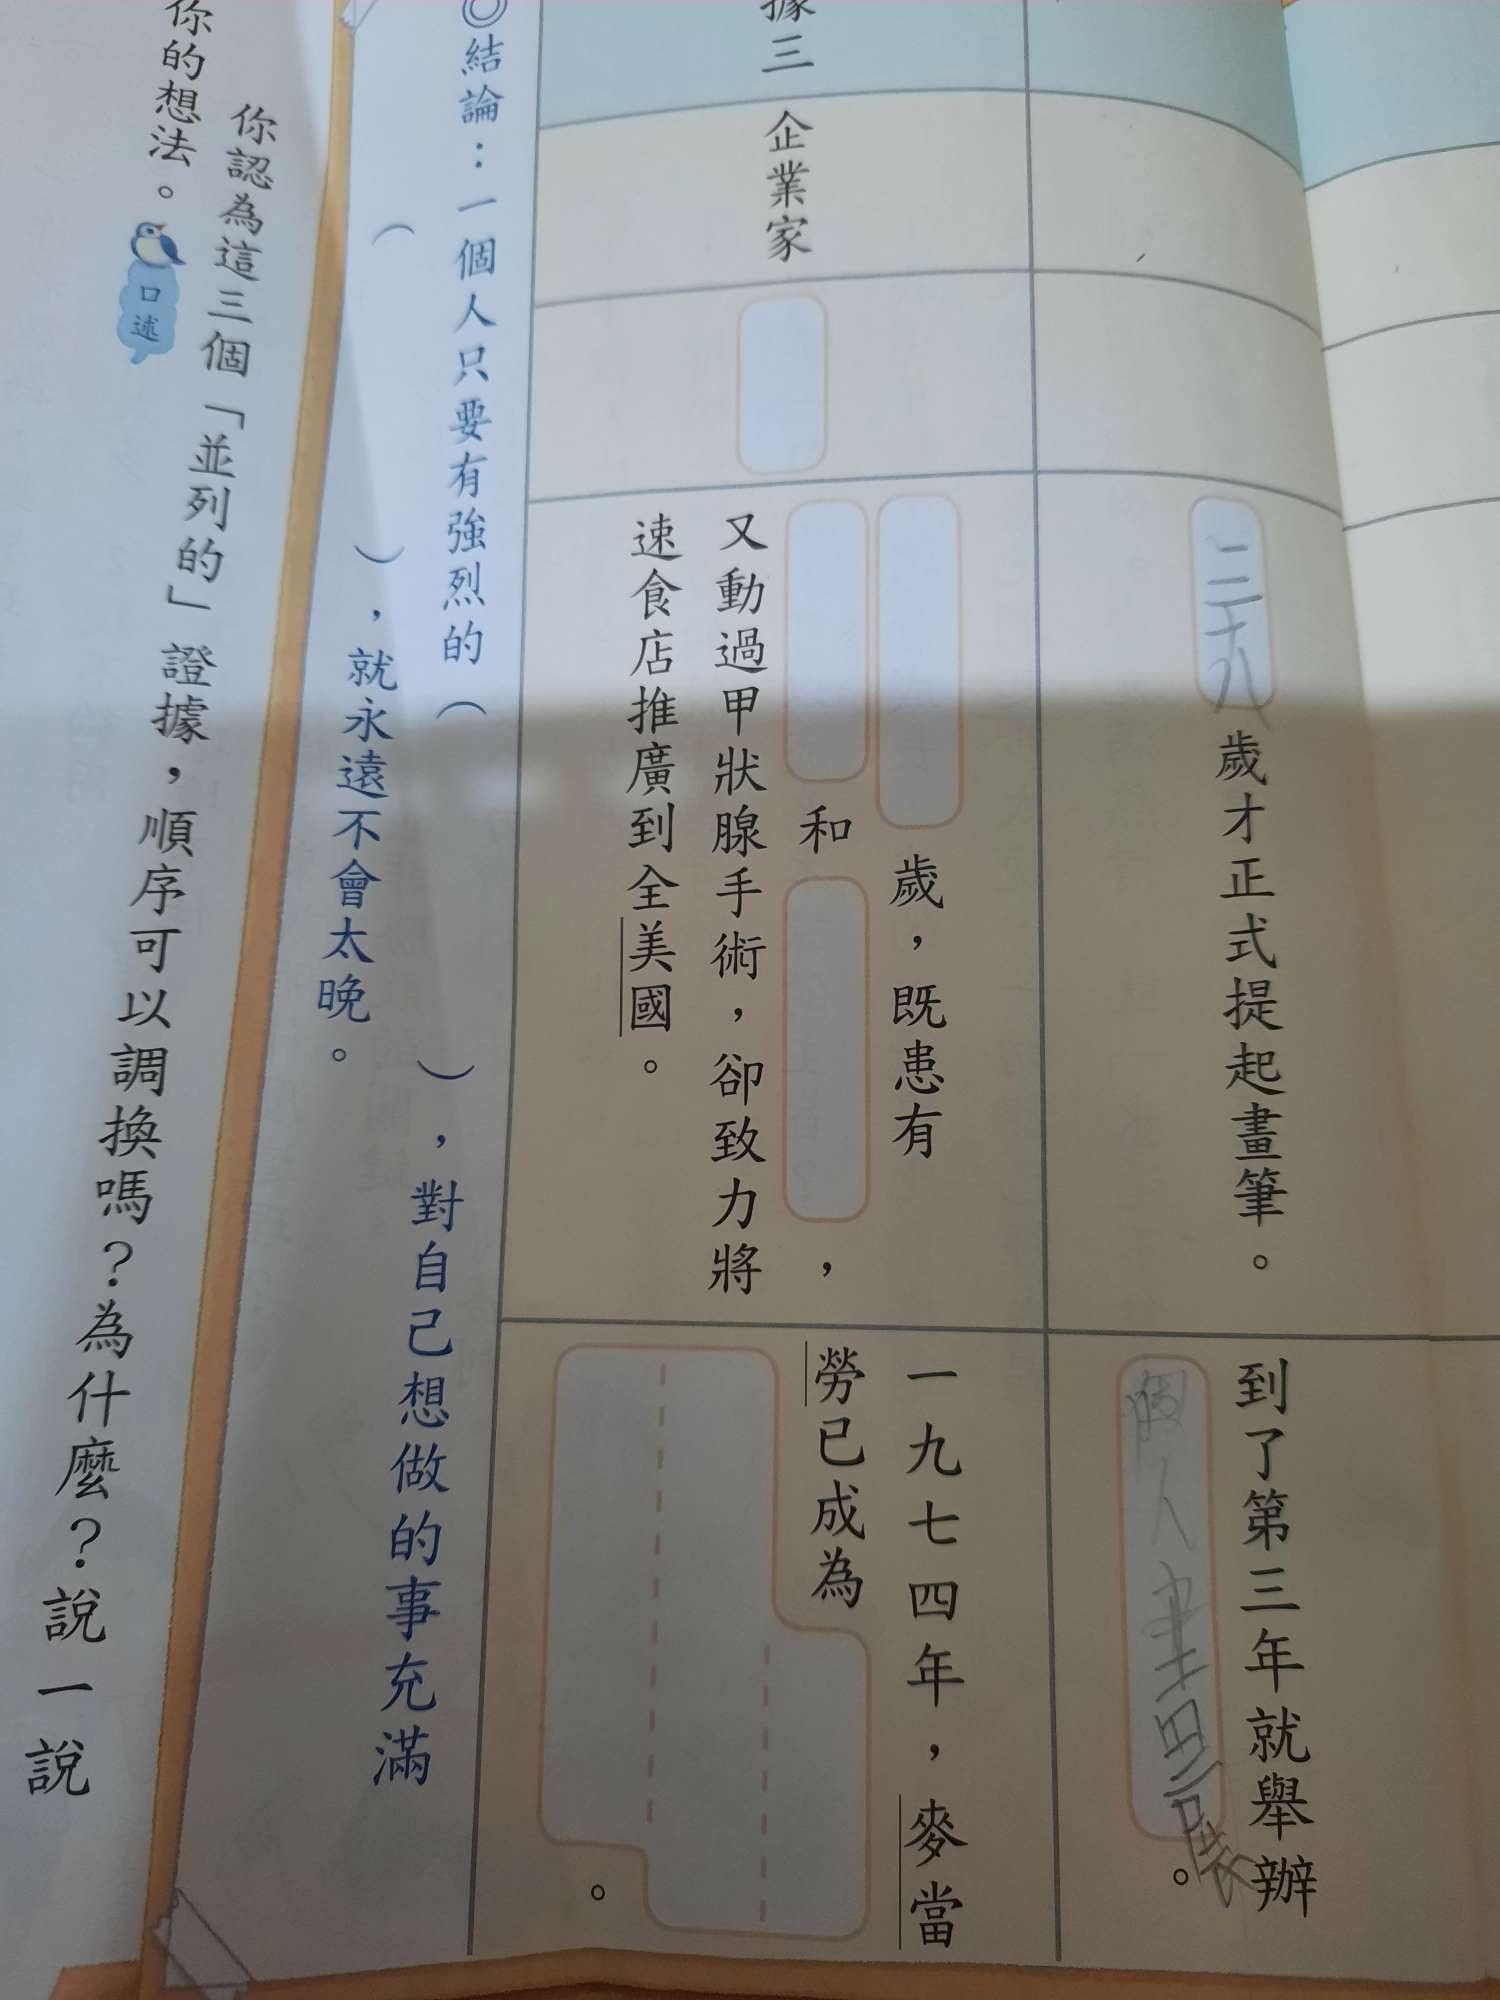 三十八歲才正式提起畫筆。
到了第三年就舉辦
個人畫展。
據三
企業家
歲，既患有
和，
又動過甲狀腺手術，卻致力將
速食店推廣到全美國。
一九七四年，麥當
勞已成為
。
◎結論：一個人只要有強烈的（　　），對自己想做的事充滿
（　　），就永遠不會太晚。
你認為這三個「並列的」證據，順序可以調換嗎？為什麼？說一說
你的想法。
口述